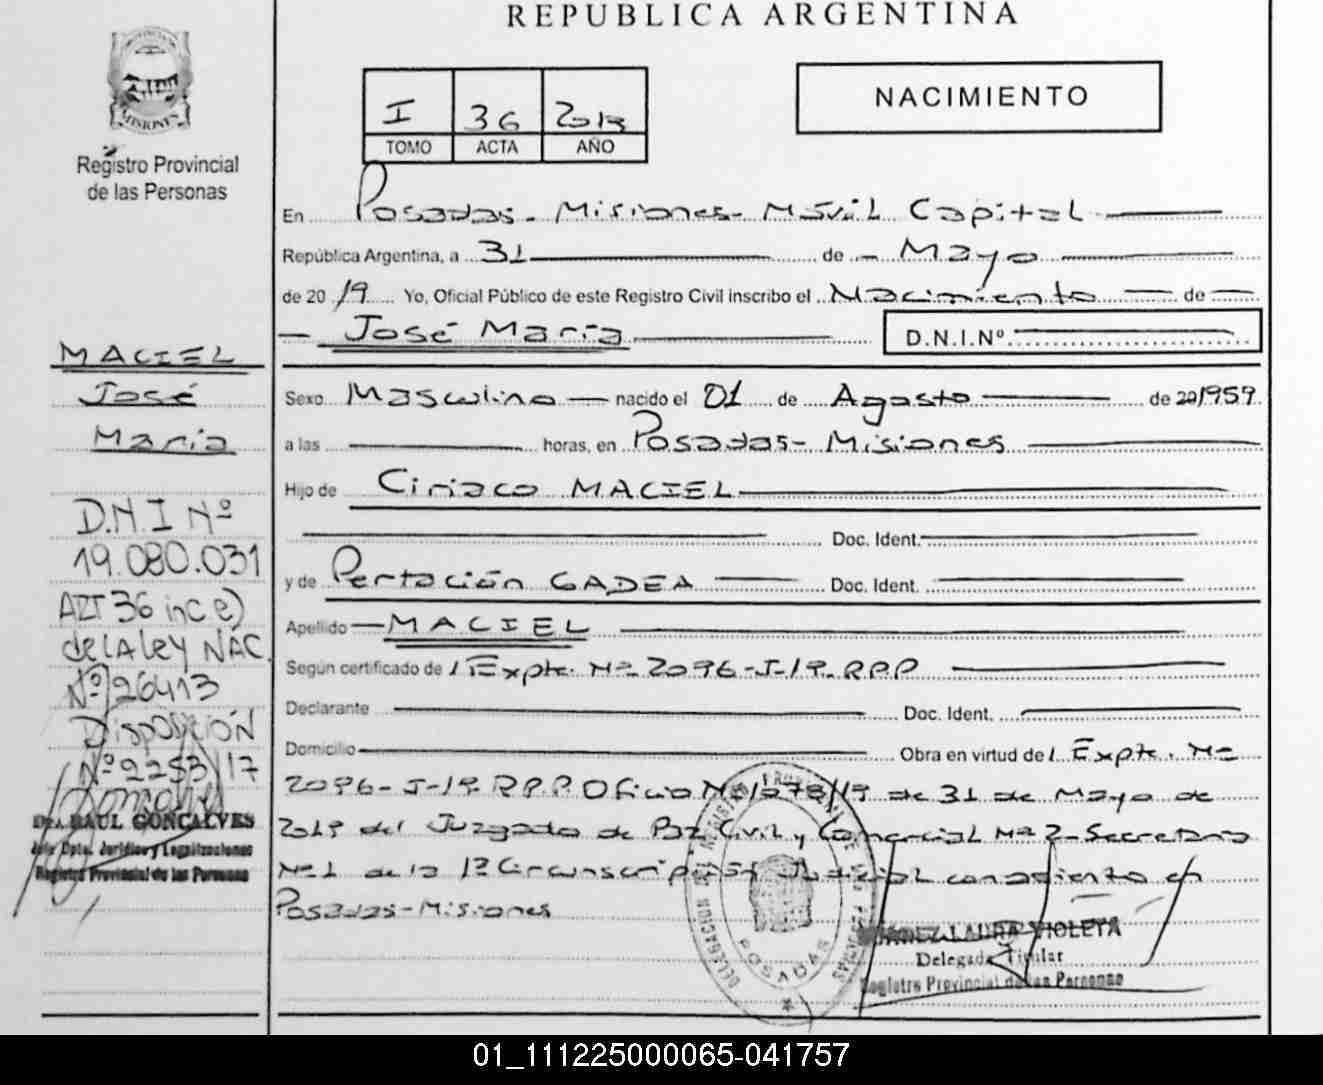 REPUBLICA ARGENTINA
PROVINCIA DE
MISIONES
Registro Provincial
de las Personas
I 36
TOMO ACTA AÑO
NACIMIENTO
En Posadas - Misiones - Móvil Capital
República Argentina, a 31 de Mayo
de 2019 Yo, Oficial Público de este Registro Civil inscribo el Nacimiento de
José María
D.N.I.Nº
MACIEL
José
María
Sexo Masculino nacido el 01 de Agosto de 20/1959
a las horas, en Posadas - Misiones
Hijo de Ciriaco MACIEL
Doc. Ident.
y de Pertación GADEA Doc. Ident.
Apellido MACIEL
Según certificado de / Expte. Nº 2096-J-19. R.P.P
Declarante Doc. Ident.
Domicilio Obra en virtud de / Expte. Nº
2096-J-19. R.P.P. Oficio Nº 1278/19 de 31 de Mayo de
2019 del Juzgado de Paz Civil y Comercial Nº 2 - Secretaria
Nº 1 de la 1ª Circunscripción Judicial con asiento en
Posadas - Misiones
D.N.I Nº
19.080.031
ART 36 inc e)
de LA LEY NAC.
Nº 26413
Disposición
Nº 2253/17
RAUL GONCALVES
Jefe Dpto. Jurídico y Legalizaciones
Registro Provincial de las Personas
DELEGACION DEL REGISTRO PROVINCIAL DE LAS PERSONAS
POSADAS
LAURA VIOLETA
Delegada Titular
Registro Provincial de las Personas
01_111225000065-041757